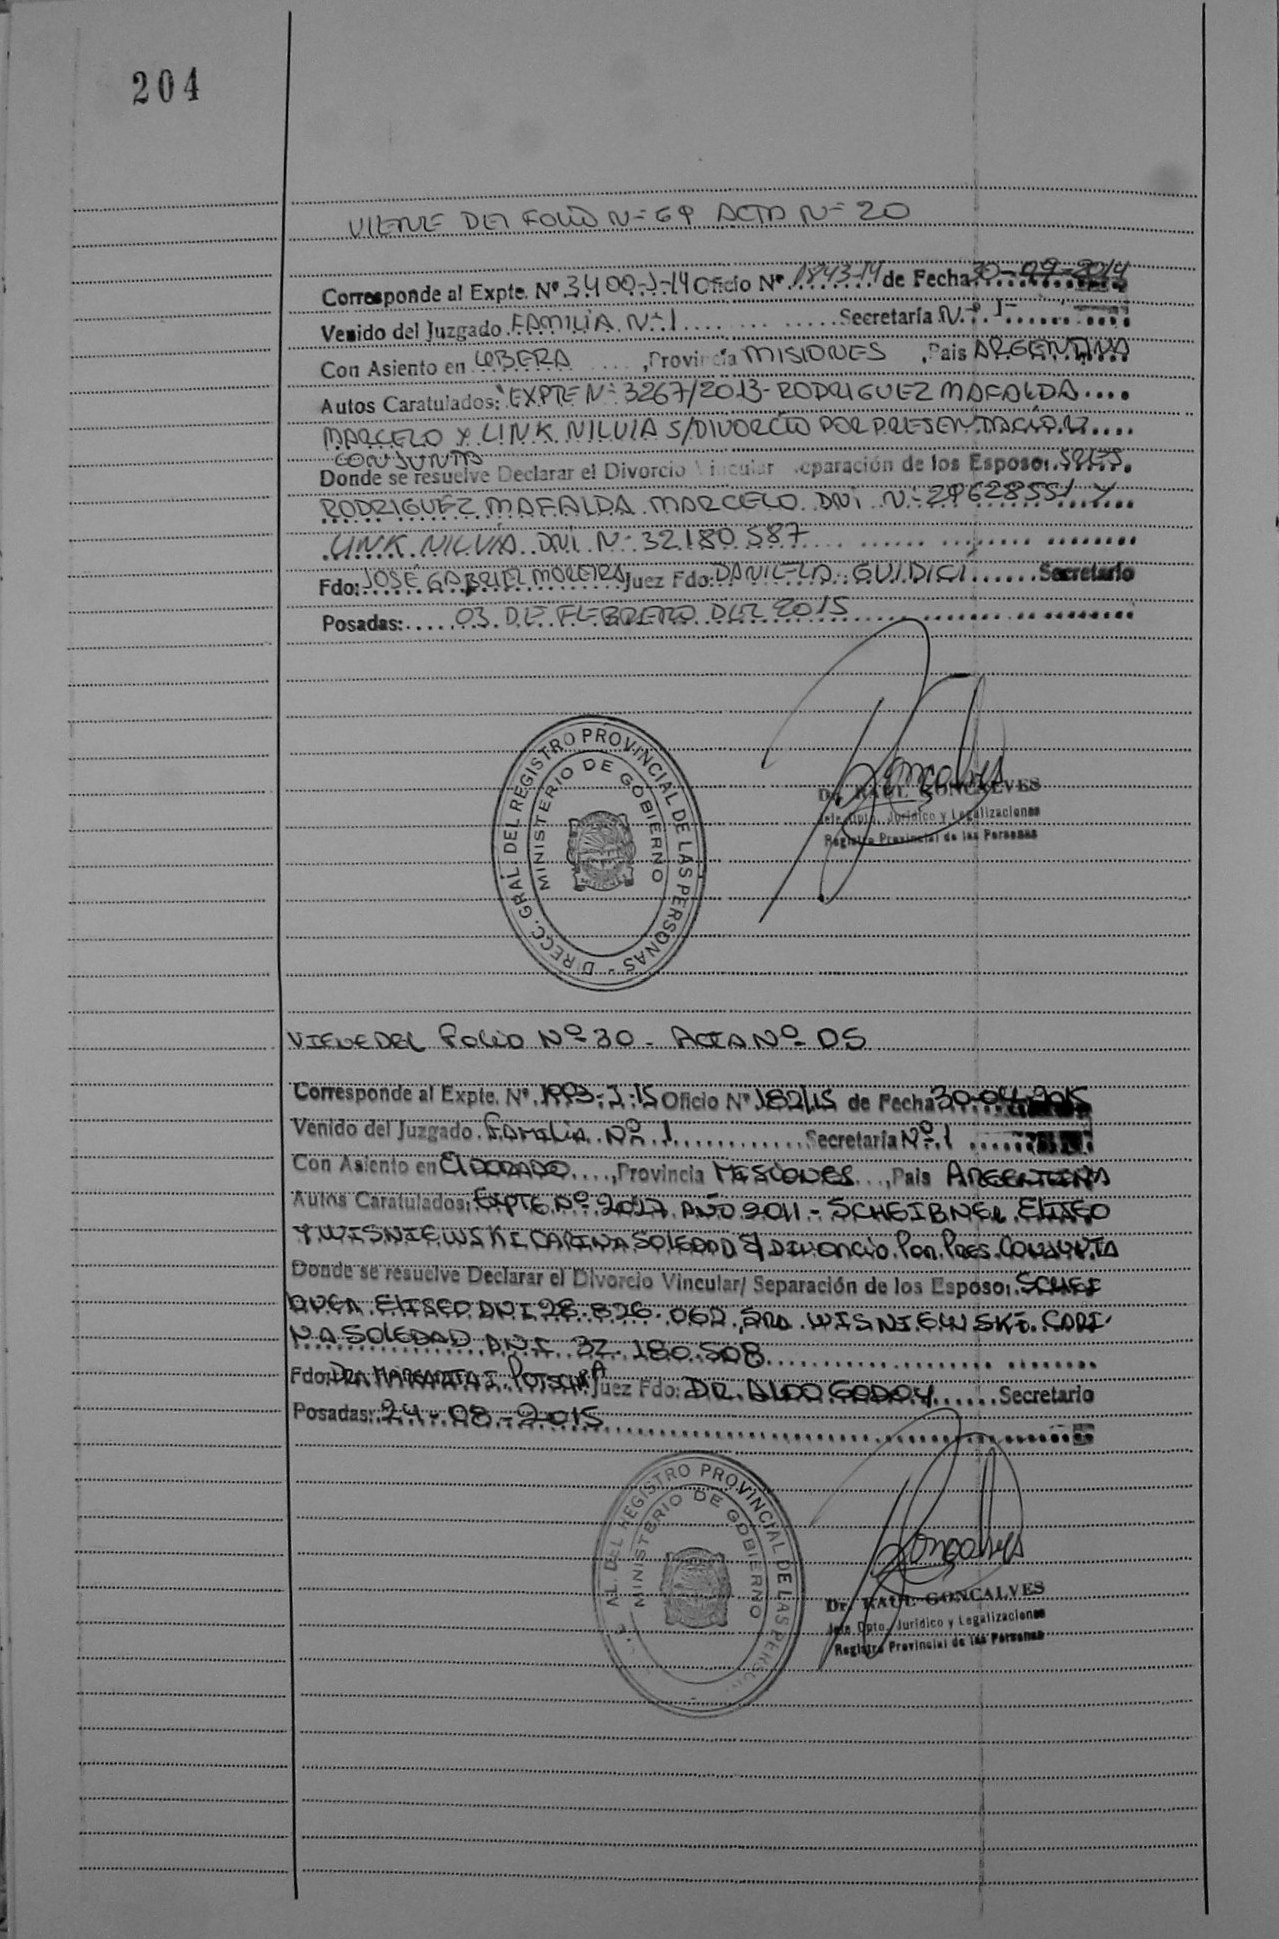 204
VIENE DEL FOLIO N=69 ACTA N=20
Corresponde al Expte. Nº 3400-J-14 Oficio Nº 1843-14 de Fecha 30-09-2014
Venido del Juzgado FAMILIA N:1 Secretaría Nº 1
Con Asiento en OBERA, Provincia MISIONES, País ARGENTINA
Autos Caratulados: EXPTE N: 3267/2013-RODRIGUEZ MAFALDA
MARCELO Y LINK NILVIA S/DIVORCIO POR PRESENTACIÓN
CONJUNTA
Donde se resuelve Declarar el Divorcio Vincular Separación de los Esposos
RODRIGUEZ MAFALDA MARCELO DNI N: 29628551 Y
LINK NILVIA DNI N: 32180587
Fdo: JOSÉ GABRIEL MOREIRA Juez Fdo: DANIELA GUIDICI Secretario
Posadas: 03 DE FEBRERO DEL 2015
DIRECC. GRAL. DEL REGISTRO PROVINCIAL DE LAS PERSONAS -
MINISTERIO DE GOBIERNO
Dr. RAUL GONCALVES
Jefe Dpto. Jurídico y Legalizaciones
Registro Provincial de las Personas
VIENE DEL FOLIO Nº 30 - ACTA Nº 05
Corresponde al Expte. Nº 1993-J-15 Oficio Nº 182/15 de Fecha 30-04-2015
Venido del Juzgado FAMILIA Nº 1 Secretaría Nº 1
Con Asiento en ELDORADO, Provincia MISIONES, País ARGENTINA
Autos Caratulados: EXPTE Nº 2017 AÑO 2011 - SCHEIBNER ELISEO
Y WISNIEWSKI CARINA SOLEDAD S/ DIVORCIO POR PRES. CONJUNTA
Donde se resuelve Declarar el Divorcio Vincular/ Separación de los Esposos SCHEI
BNER ELISEO DNI 28.826.062 SRA WISNIEWSKI CARI
NA SOLEDAD DNI 32.180.508
Fdo: DRA MARGARITA I. POTSCHKA Juez Fdo: DR. ALDO GODOY Secretario
Posadas: 24-08-2015
AL. DEL REGISTRO PROVINCIAL DE LAS PERSON
MINISTERIO DE GOBIERNO
Dr. RAUL GONCALVES
Jefe Dpto. Jurídico y Legalizaciones
Registro Provincial de las Personas